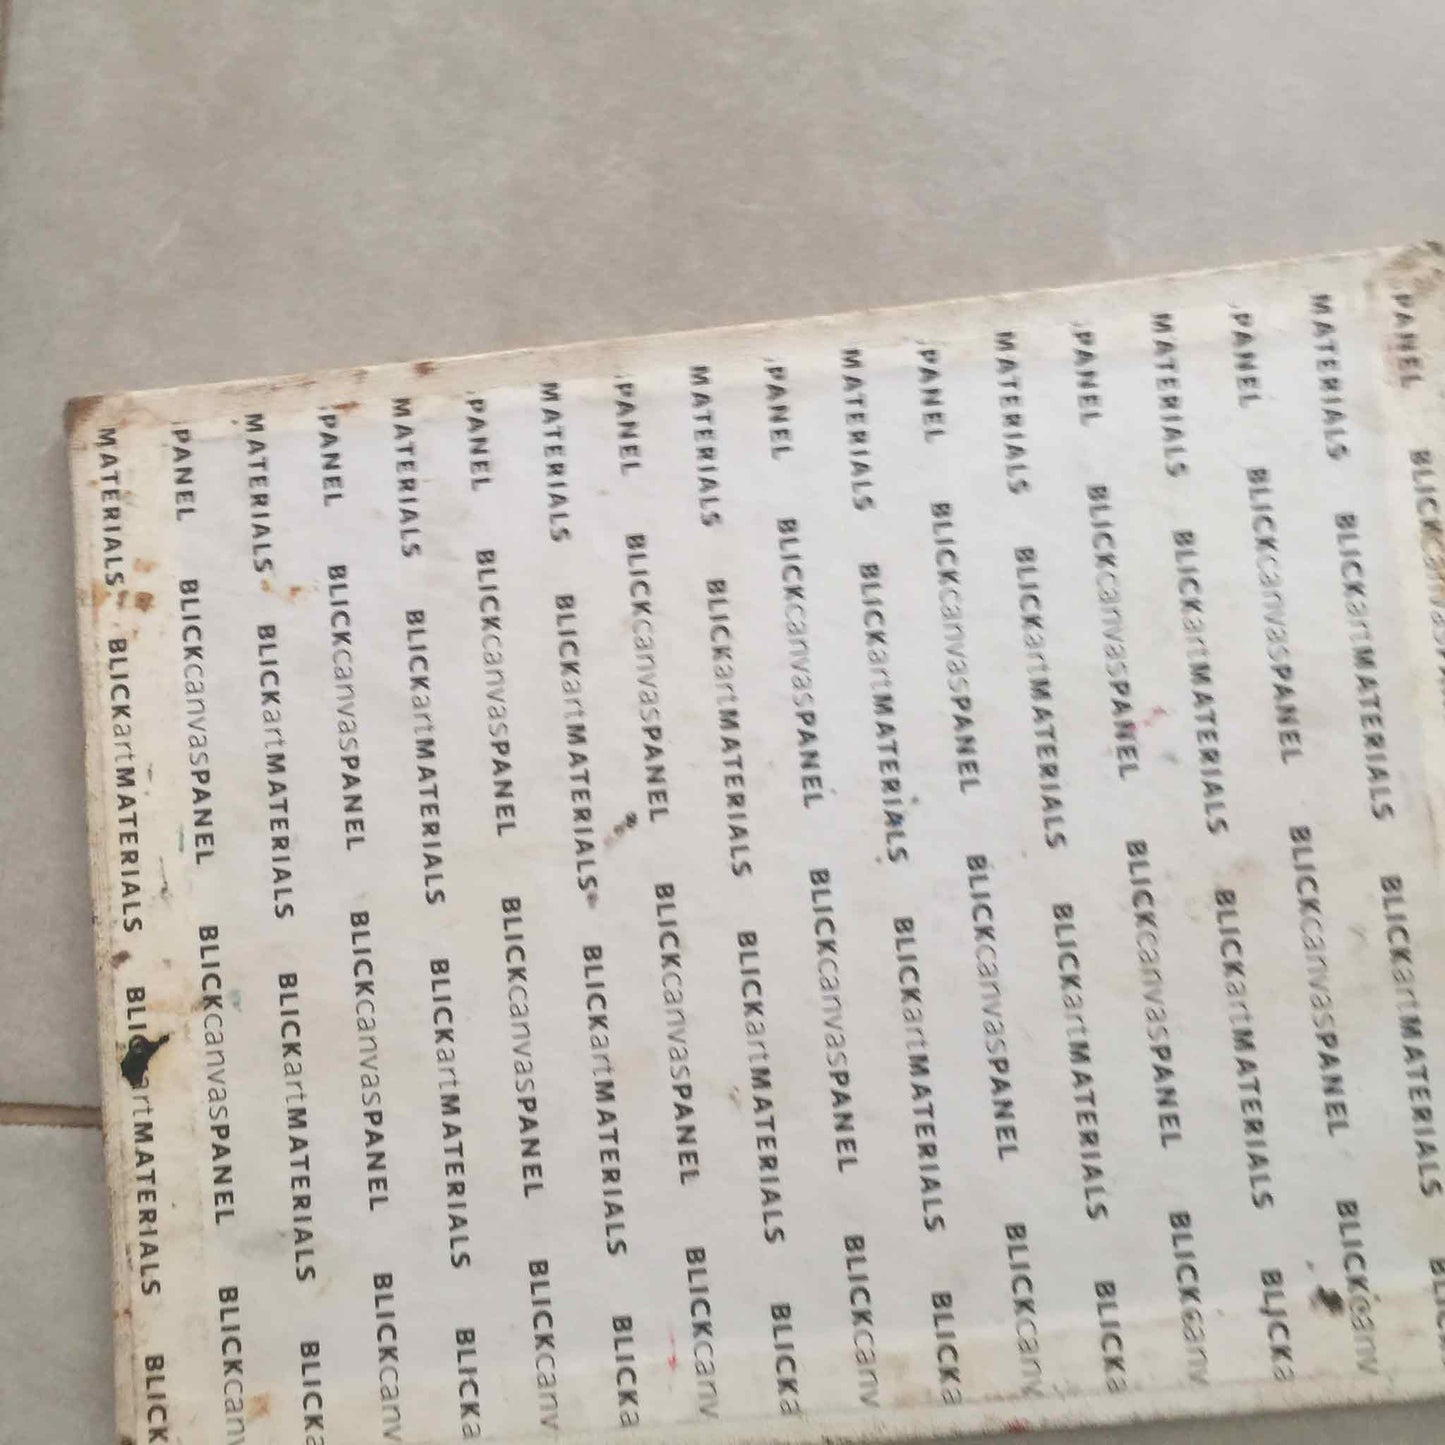 PANEL BLICKcanvas
MATERIALS BLICKartMATERIALS BLICKartMATERIALS
PANEL BLICKcanvasPANEL BLICKcanvasPANEL BLICKcanv
MATERIALS BLICKartMATERIALS BLICKartMATERIALS BLICKa
PANEL BLICKcanvasPANEL BLICKcanvasPANEL BLICKcanv
MATERIALS BLICKartMATERIALS BLICKartMATERIALS BLICKa
PANEL BLICKcanvasPANEL BLICKcanvasPANEL BLICKcanv
MATERIALS BLICKartMATERIALS BLICKartMATERIALS BLICKa
PANEL BLICKcanvasPANEL BLICKcanvasPANEL BLICKcanv
MATERIALS BLICKartMATERIALS BLICKartMATERIALS BLICKa
PANEL BLICKcanvasPANEL BLICKcanvasPANEL BLICKcanv
MATERIALS BLICKartMATERIALS BLICKartMATERIALS BLICKa
PANEL BLICKcanvasPANEL BLICKcanvasPANEL BLICKcanv
MATERIALS BLICKartMATERIALS BLICKartMATERIALS BLICKa
PANEL BLICKcanvasPANEL BLICKcanvasPANEL BLICKcanv
MATERIALS BLICKartMATERIALS BLICKartMATERIALS BLICKa
PANEL BLICKcanvasPANEL BLICKcanvasPANEL BLICKcanv
MATERIALS BLICKartMATERIALS BLICKartMATERIALS BLICK